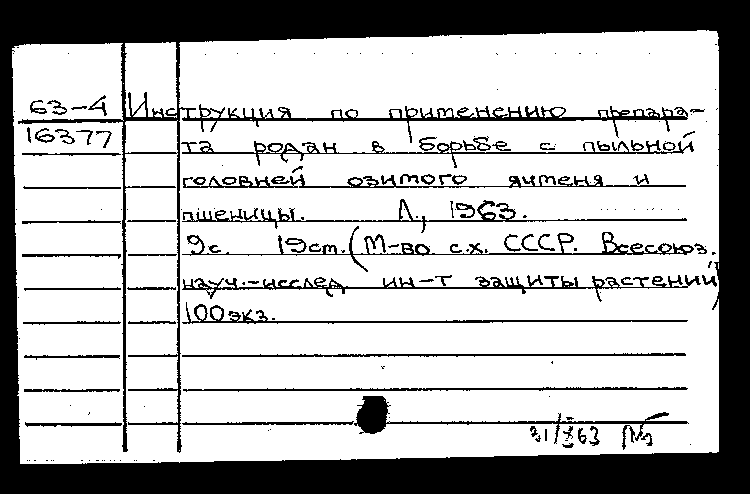 63-4 Инструкция по применению препара-
16377 та родан в борьбе с пыльной
головней озимого ячменя и
пшеницы. Л., 1963.
9с. 19см. (М-во с.х. СССР. Всесоюз.
науч.-исслед ин-т защиты растений)
100экз.
31/X 63